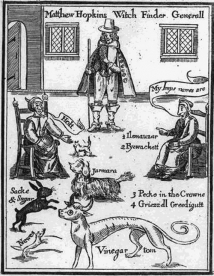 Matthew Hopkins Witch Finder Generall
My Imps names are
1 Ilemauzar
2 Pyewackett
Jarmara
Sacke
& Sugar
3 Pecke in the Crowne
4 Griezzell Greedigutt
Newes
Vinegar tom